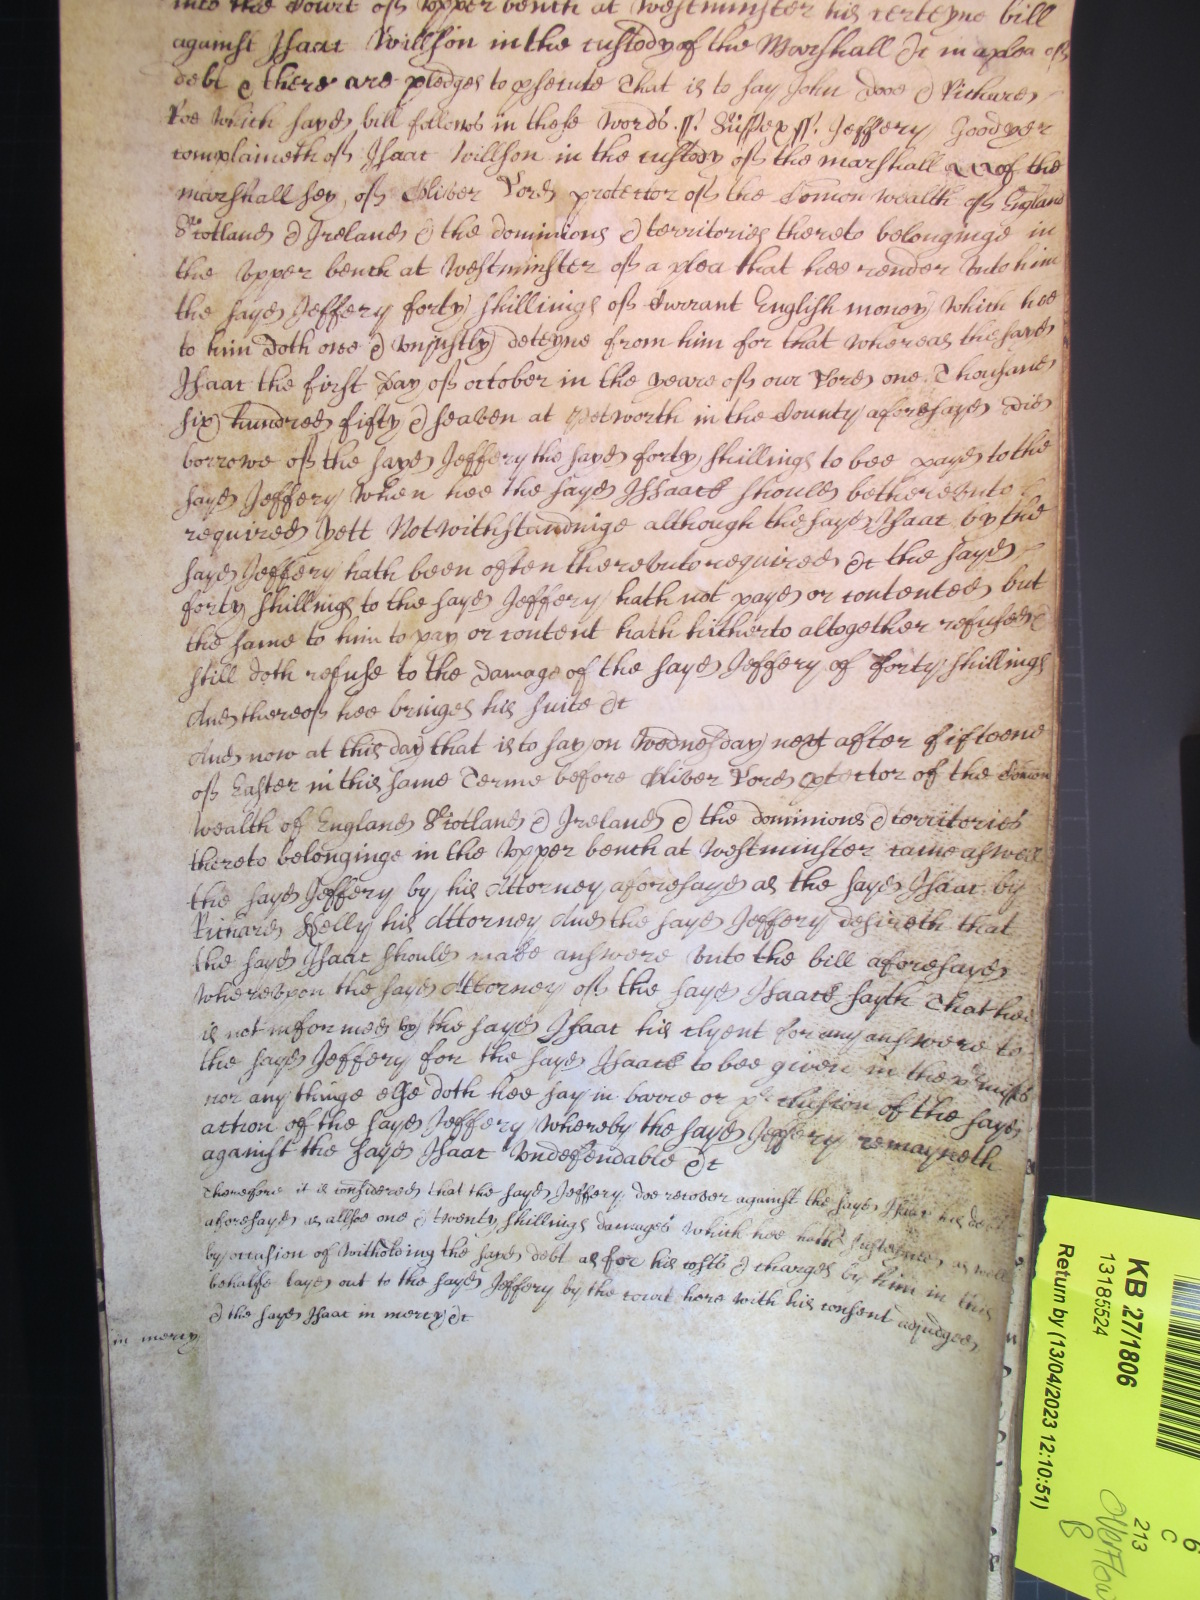 into the Court of Upper bench at Westminster his certeyne bill
against Isaac Willson in the custody of the Marshall &c in a plea of
debt & there are pledges to psecute That is to say John Doe & Richard
Roe Which sayd bill followes in these Words .ss. Sussex ss. Jeffery Goodyer
complaineth of Isaac Willson in the custody of the marshall of the
marshallsey of Oliver Lord protector of the Comon wealth of England
Scotland & Ireland & the dominions & territories thereto belonginge in
the Upper bench at Westminster of a plea that hee render unto him
the sayd Jeffery forty shillings of Currant English money Which hee
to him doth owe & Uniustly deteyne from him for that Whereas the sayd
Isaac the first Day of october in the yeare of our Lord one Thousand
six hundred fifty & seaven at Petworth in the County aforesayd did
borrowe of the sayd Jeffery the sayd forty shillings to bee payd to the
sayd Jeffery When hee the sayd Isaack should bethereunto
required yett Notwithstandinge although the sayd Isaac by the
sayd Jeffery hath been often thereuntorequired &c the sayd
forty shillings to the sayd Jeffery hath not payd or contented but
the same to him to pay or content hath hitherto altogether refused &
still doth refuse to the Damage of the sayd Jeffery of forty shillings
And thereof hee bringes his suite &c
And now at this day that is to say on Wednesday next after fifteene
of Easter in this same Terme before Oliver Lord ptector of the Comon
wealth of England Scotland & Ireland & the dominions & territories
thereto belonginge in the Upper bench at Westminster came aswell
the sayd Jeffery by his Attorney aforesayd as the sayd Isaac by
Richard Kelly his Attorney And the sayd Jeffery desireth that
the sayd Isaac should make answere unto the bill aforesayd
Whereupon the sayd Attorney of the sayd Isaack sayth That hee
is not informed by the sayd Isaac his clyent for any answere to
the sayd Jeffery for the sayd Isaack to bee given in the pmisses
nor any thinge else doth hee say in barre or pclusion of the sayd
action of the sayd Jeffery Whereby the sayd Jeffery remayneth
against the sayd Isaac Undefendable &c
Therefore it is considered that the sayd Jeffery doe recover against the sayd Isaac his debt
aforesayd as allsoe one & twenty shillings damages Which hee hath susteined as well
by occasion of Witholding the sayd debt as for his costs & charges by him in this
behalfe layd out to the sayd Jeffery by the court here with his consent adjudged
& the sayd Isaac in mercy &c
in mercy
KB 27/1806
13185524
Return by (13/04/2023 12:10:51)
6
C
213
Overflow
B